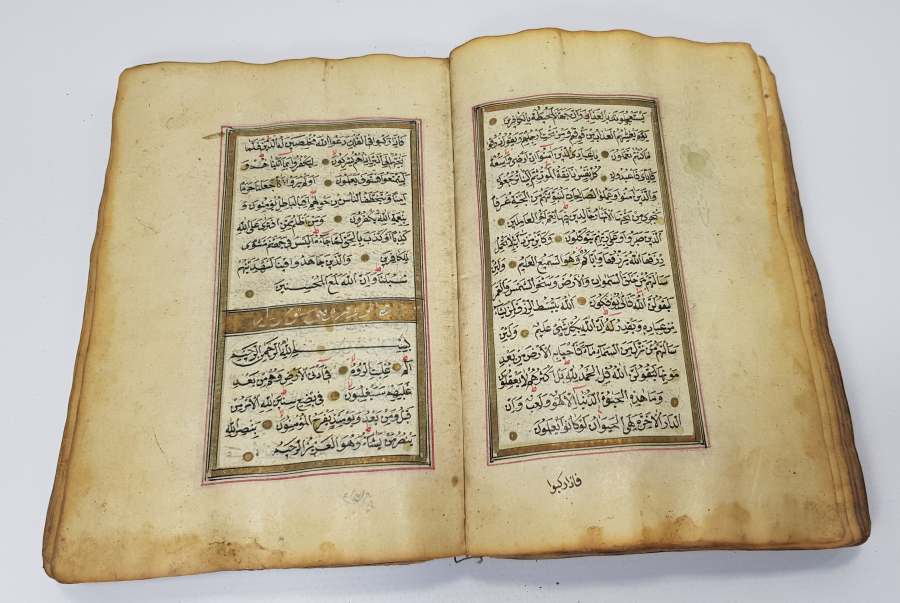 يستعجلونك بالعذاب وان جهنم لمحيطة بالكافرين
يوم يغشيهم العذاب من فوقهم ومن تحت ارجلهم ويقول ذوقوا
ما كنتم تعملون يا عبادي الذين آمنوا ان ارضي واسعة
فاياي فاعبدون كل نفس ذائقة الموت ثم الينا ترجعون
والذين آمنوا وعملوا الصالحات لنبوئنهم من الجنة غرفا
تجري من تحتها الانهار خالدين فيها نعم اجر العاملين
الذين صبروا وعلى ربهم يتوكلون وكاين من دابة لا تحمل
رزقها الله يرزقها واياكم وهو السميع العليم ولئن
سالتهم من خلق السموات والارض وسخر الشمس والقمر
ليقولن الله فانى يؤفكون الله يبسط الرزق لمن يشاء
من عباده ويقدر له ان الله بكل شيء عليم ولئن
سالتهم من نزل من السماء ماء فاحيا به الارض من بعد
موتها ليقولن الله قل الحمد لله بل اكثرهم لا يعقلون
وما هذه الحيوة الدنيا الا لهو ولعب وان
الدار الاخرة لهي الحيوان لو كانوا يعلمون
فاذا ركبوا
فاذا ركبوا في الفلك دعوا الله مخلصين له الدين فلما
نجيهم الى البر اذا هم يشركون ليكفروا بما آتيناهم و
ليتمتعوا فسوف يعلمون اولم يروا انا جعلنا حرما
آمنا ويتخطف الناس من حولهم افبالباطل يؤمنون و
بنعمة الله يكفرون ومن اظلم ممن افترى على الله
كذبا او كذب بالحق لما جاءه اليس في جهنم مثوى
للكافرين والذين جاهدوا فينا لنهدينهم
سبلنا وان الله لمع المحسنين
بسم الله الرحمن الرحيم
الم غلبت الروم في ادنى الارض وهم من بعد
غلبهم سيغلبون في بضع سنين لله الامر من
قبل ومن بعد ويومئذ يفرح المؤمنون بنصر الله
ينصر من يشاء وهو العزيز الرحيم